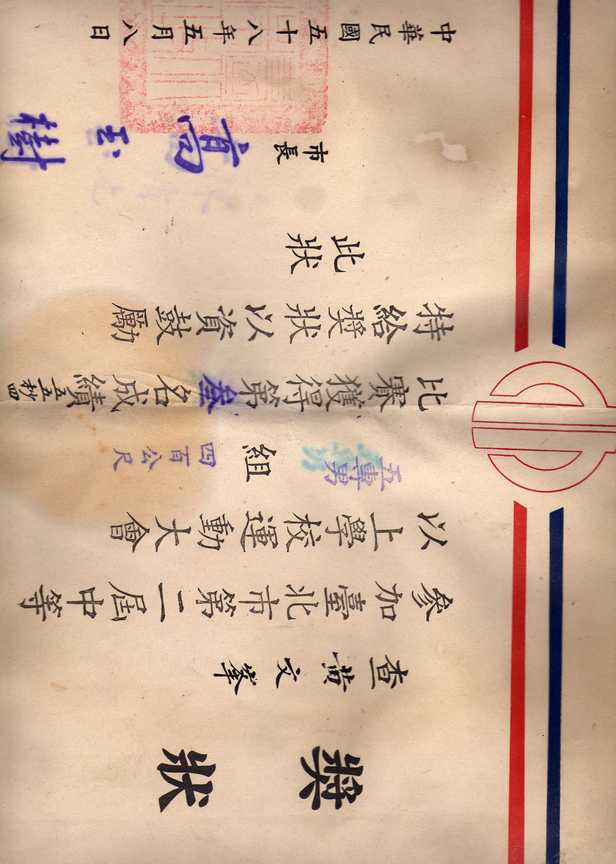 獎狀
查文峯
參加臺北市第二屆中等
以上學校運動大會
五專男組四百公尺
比賽獲得第叁名成績五五秒四
特給獎狀以資鼓勵
此狀
市長 高玉樹
中華民國五十八年五月八日